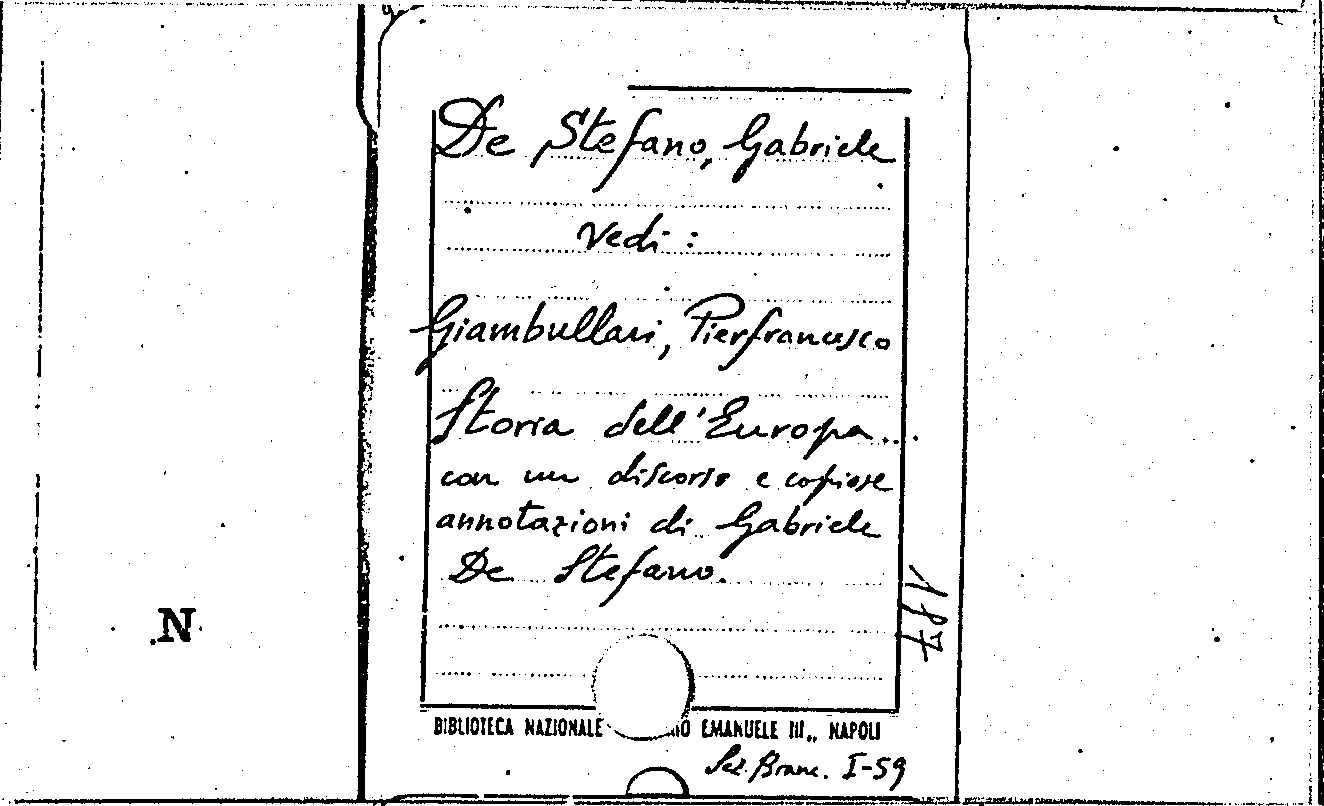 De Stefano, Gabriele
Vedi :
Giambullari, Pierfrancesco
Storia dell'Europa...
con un discorso e copiose
annotazioni di Gabriele
De Stefano.
187
N
BIBLIOTECA NAZIONALE EMANUELE III„ NAPOLI
Sez. Branc. I-59